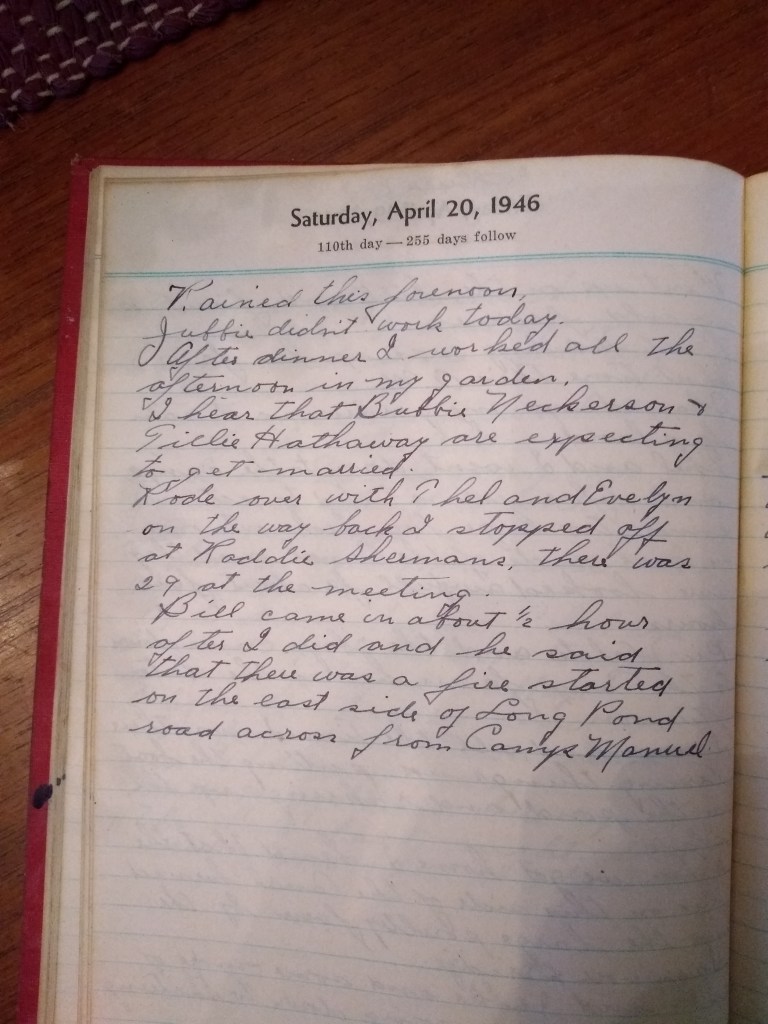 Saturday, April 20, 1946
110th day — 255 days follow
Rained this forenoon,
Jubbie didn't work today.
After dinner I worked all the
afternoon in my garden.
I hear that Bubbie Neckerson &
Tillie Hathaway are expecting
to get married.
Rode over with Thel and Evelyn
on the way back I stopped off
at Haddie Shermans, there was
29 at the meeting.
Bill came in about ½ hour
after I did and he said
that there was a fire started
on the east side of Long Pond
road across from Camp Manuel